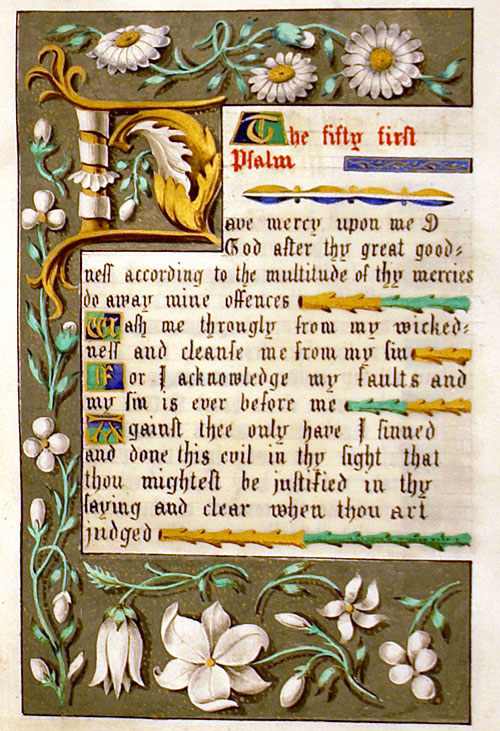 The fifty first
Psalm
Have mercy upon me O
God after thy great good=
ness according to the multitude of thy mercies
do away mine offences
Wash me througly from my wicked=
ness and cleanse me from my sin
For I acknowledge my faults and
my sin is ever before me
Against thee only have I sinned
and done this evil in thy sight that
thou mightest be justified in thy
saying and clear when thou art
judged